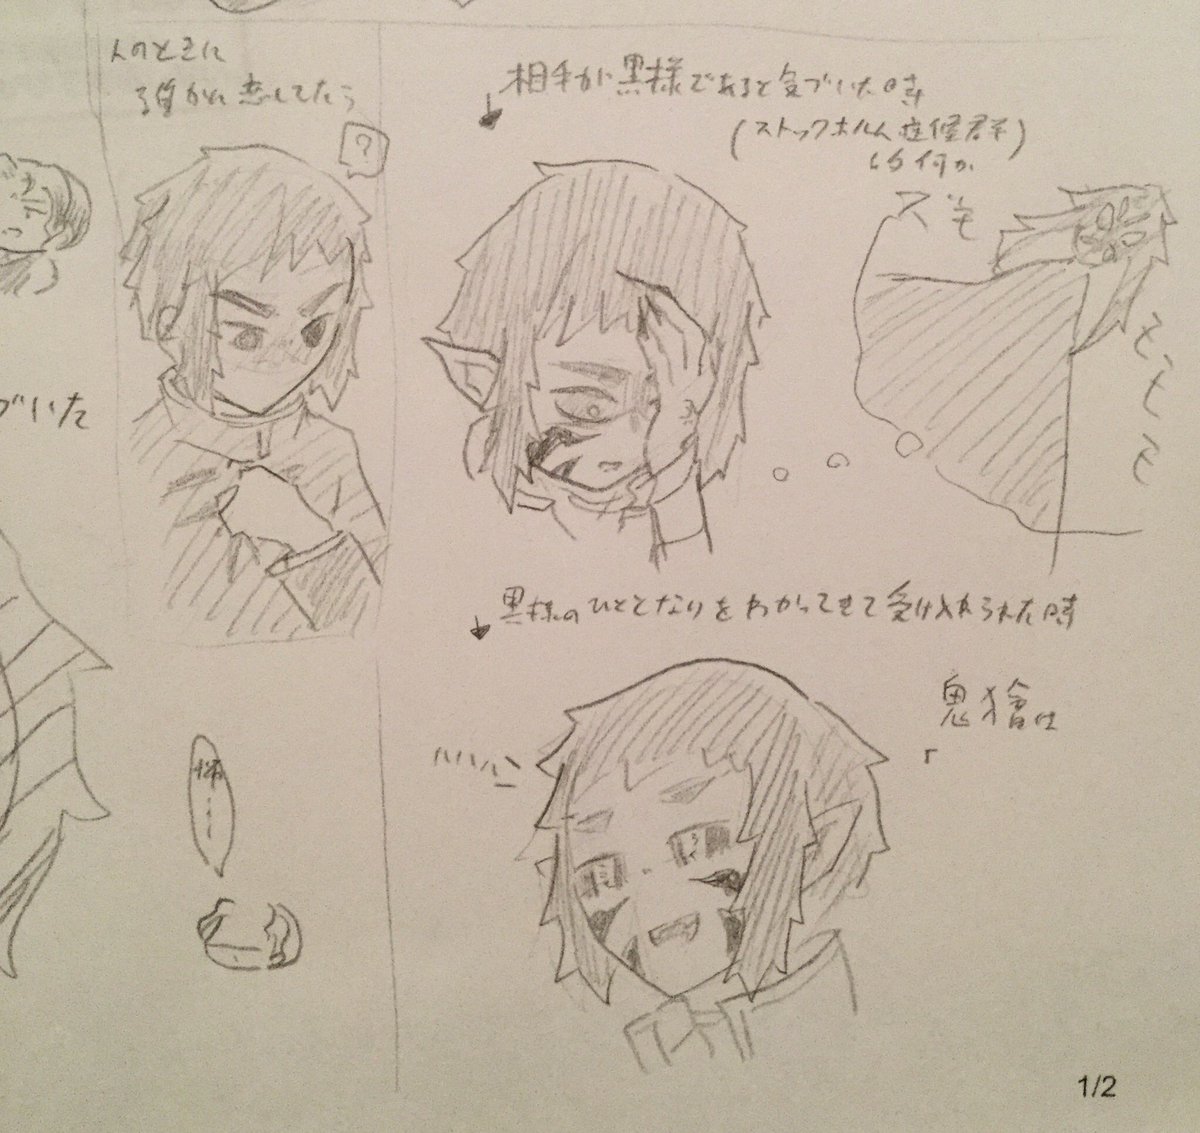 人のときに
誰かに恋してたら
?
相手が黒様であると気づいた時
(ストックホルム症候群)
的何か
ズモ
モ
モ
モ
づいた
黒様のひととなりをわかってきて受け入れられた時
鬼獪は
「
ハハハ
怖……
1/2